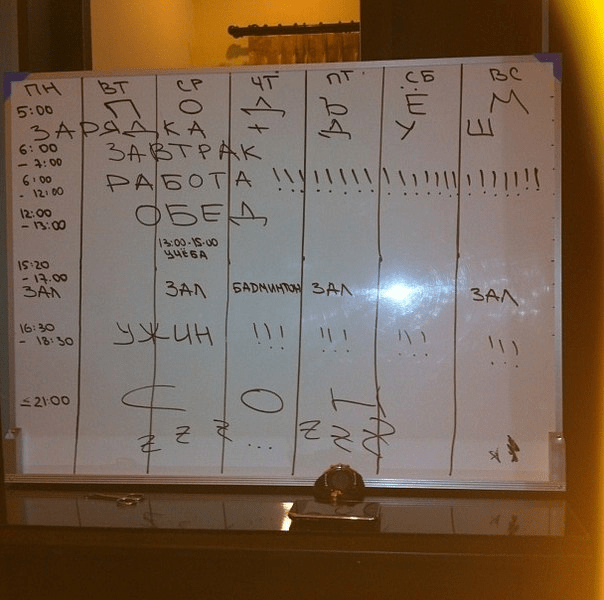 ПН ВТ СР ЧТ ПТ СБ ВС
5:00 ПОДЪЁМ
ЗАРЯДКА + ДУШ
6:00 - 7:00 ЗАВТРАК
6:00 - 12:00 РАБОТА !!!!!!!!!!!!!!!!!!!!!!!!
12:00 - 13:00 ОБЕД
13:00-15:00
УЧЁБА
15:20 - 17:00
ЗАЛ ЗАЛ БАДМИНТОН ЗАЛ ЗАЛ
16:30 - 18:30 УЖИН !!! !!! !!! !!!
≤21:00 СОН
z z z ... z z z